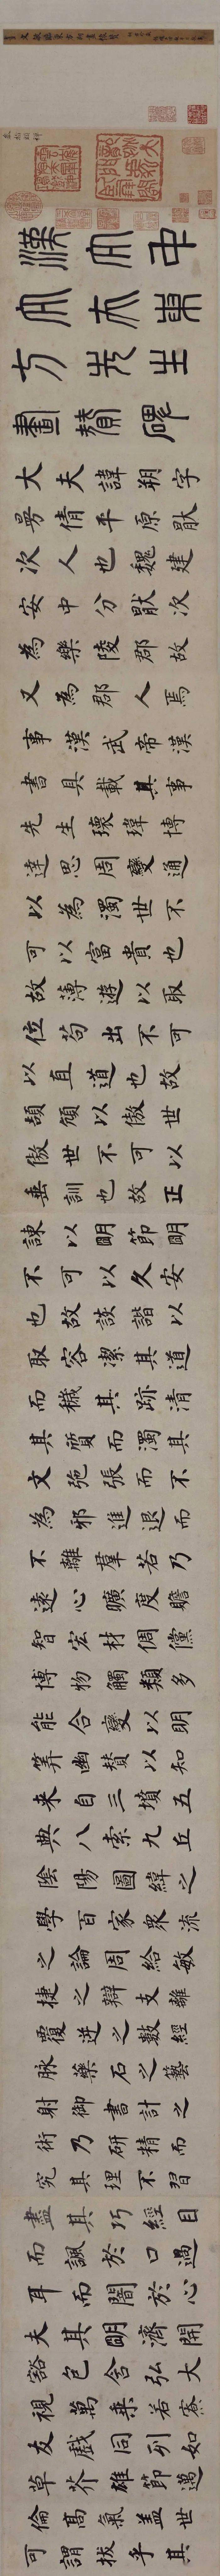 漢大中
大夫東
方先生
畫贊碑
大夫諱朔字
曼倩平原猒
次人也魏建
安中分猒次
為樂陵郡故
又為郡人焉
事漢武帝漢
書具載其事
先生瓌瑋博
達思周變通
以為濁世不
可以富貴也
故薄遊以取
位苟出不可
以直道也故
頡頏以傲世
傲世不可以
垂訓也故正
諫以明節明
不可以久安
也故詼諧以
取容潔其道
而穢其跡清
其質而濁其
文弛張而不
為邪進退而
不離羣若乃
遠心曠度贍
智宏材倜儻
博物觸類多
能合變以明
筭幽贊以知
來自三墳五
典八索九丘
陰陽圖緯之
學百家眾流
之論周給敏
捷之辯支離
覆逆之數經
脉藥石之藝
射御書計之
術乃研精而
究其理不習
盡其巧經目
而諷於口過
耳而闇於心
夫其明濟開
豁包含弘大
視萬乘若寮
友戲同列如
草芥雄節邁
倫高氣蓋世
可謂拔乎其